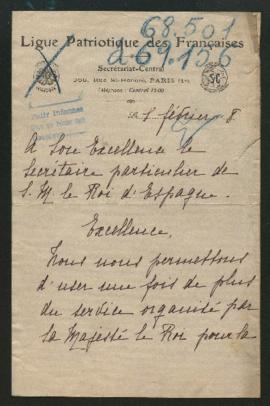 68.501
269.155
Ligue Patriotique des Françaises
Secrétariat-Central
368, Rue St-Honoré, PARIS
Téléphone : Central
février 8
A Son Excellence le
Secrétaire particulier de
S. M. le Roi d'Espagne.
Excellence,
Nous nous permettons
d'user une fois de plus
du service organisé par
sa Majesté le Roi pour la